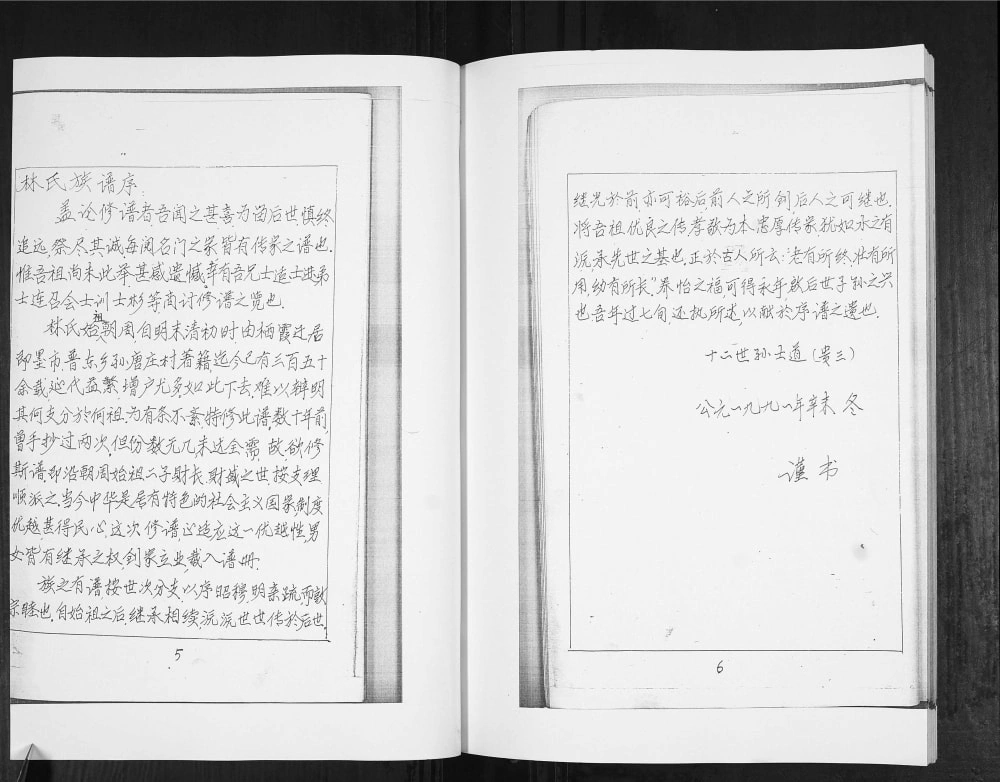 林氏族谱序:
盖论修谱者吾闻之甚喜为啚后世慎终
追远,祭尽其诚每阅名门之家皆有传家之谱也.
惟吾祖尚未此举甚感遗憾幸有吾兄士运士洪弟
士连召会士训士杉等商讨修谱之览也.
林氏始祖朝周自明末清初时由栖霞迁居
即墨市普东乡孙唐庄村著籍迄今已有三百五十
余载延代益繁增户尤多如此下去难以辩明
其何支分於何祖为有条不紊特修此谱数十年前
曾手抄过两次,但份数无几未达全需,故欲修
斯谱即沿朝周始祖二子财长财盛之世按支理
顺派之.当今中华是居有特色的社会主义国家制度
优越甚得民心,这次修谱必适应这一优越性,男
女皆有继承之权,创家立业,载入谱册.
族之有谱按世次分支,以序昭穆,明亲疏而敦
宗睦也.自始祖之后继承相续,流流世世传於后世.
5
继光於前亦可裕后前人之所创后人之可继也.
将吾祖优良之传孝敬为本,忠厚传家犹如水之有
流,承先世之基也.正於古人所云:"老有所终,壮有所
用,幼有所长."养怡之福,可得永年,然后世子孙之兴
也吾年过七旬,还执所述,以献於序谱之遗也.
十二世孙士道(贵三)
公元一九九一年辛未 冬
谨书
6